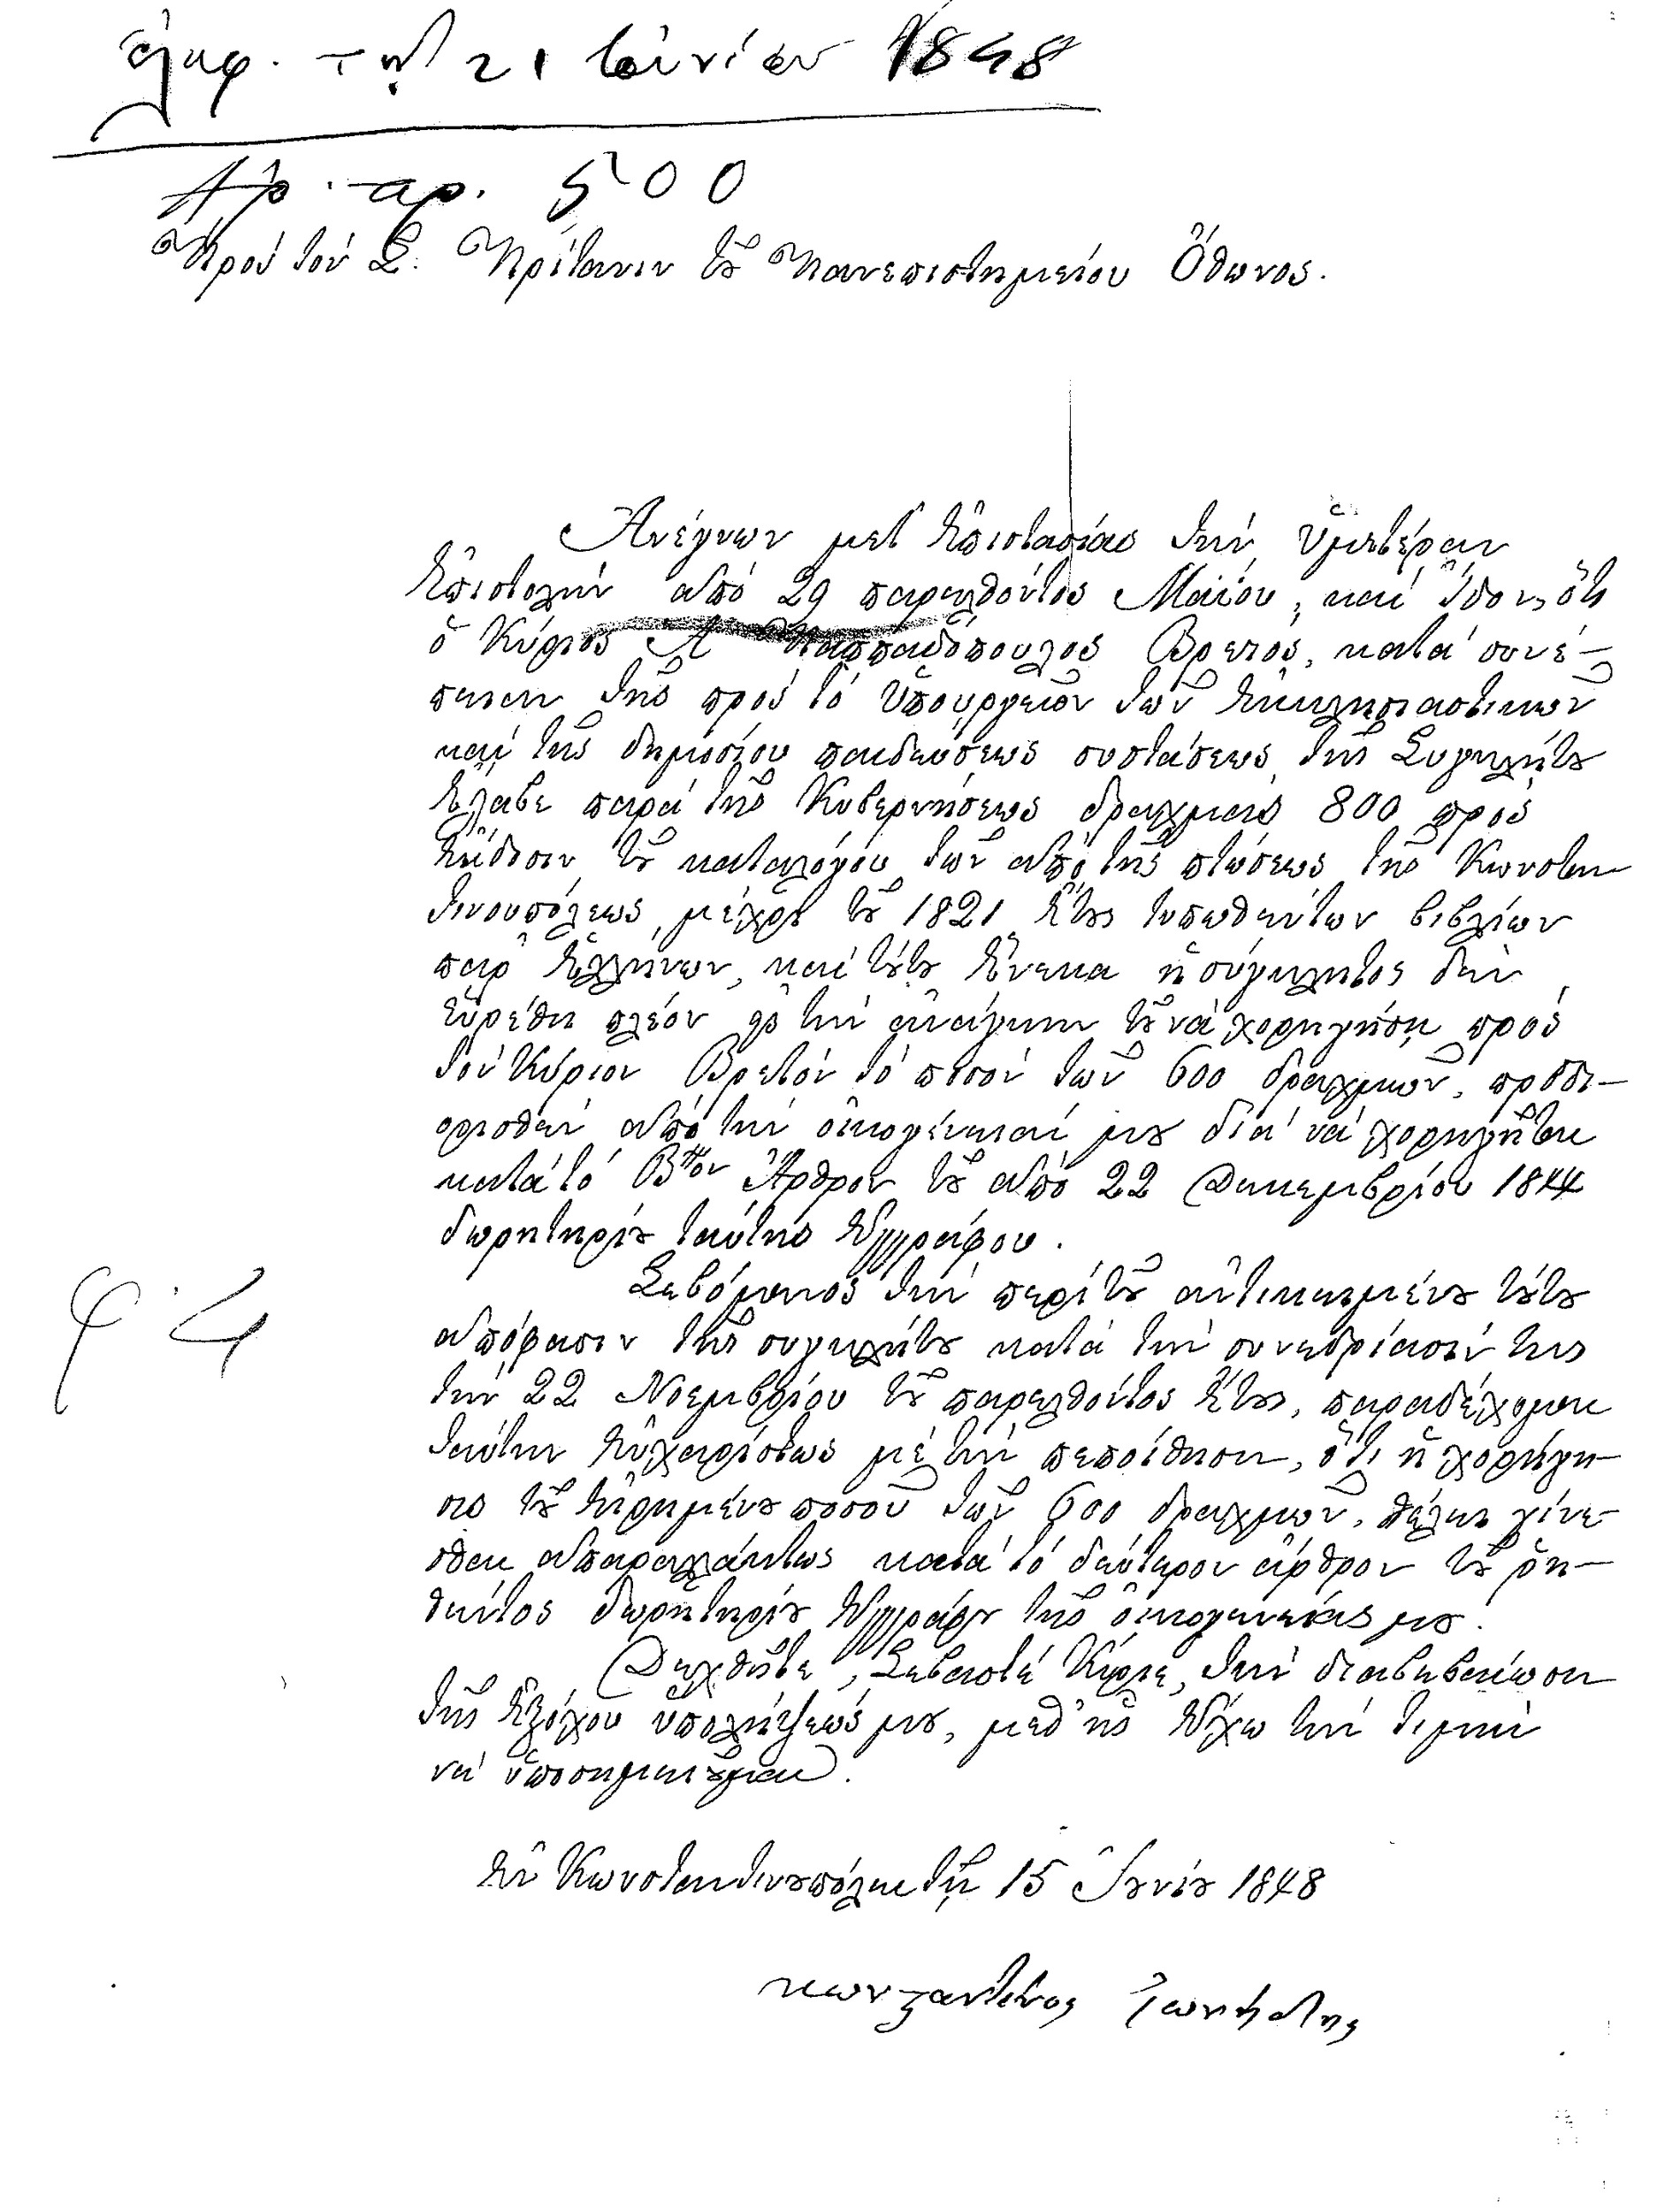 ἐλήφ. τῇ 21 Ἰουνίου 1848
Ἀρ. πρ. 500
Πρὸς τὸν Σ. Πρύτανιν τοῦ Πανεπιστημείου Ὄθωνος.
Ἀνέγνων μετ' ἐπιστασίας τὴν ὑμετέραν
ἐπιστολὴν ἀπὸ 29 παρελθόντος Μαΐου, καὶ εἶδον, ὅτι
ὁ Κύριος Α Παππαδόπουλος Βρετὸς, κατὰ συνέ-
πειαν τῆς πρὸς τὸ Ὑπουργεῖον τῶν Ἐκκλησιαστικῶν
καὶ τῆς δημοσίου παιδεύσεως συστάσεως τῆς Συγκλήτου
ἔλαβε παρὰ τῆς Κυβερνήσεως δραχμὰς 800 πρὸς
ἔκδοσιν τοῦ καταλόγου τῶν ἀπὸ τῆς πτώσεως τῆς Κωνσταν
τινουπόλεως μέχρι τοῦ 1821 ἔτους τυπωθέντων βιβλίων
παρ' Ἑλλήνων, καὶ τούτου ἕνεκα ἡ σύγκλητος δὲν
εὑρέθη πλέον εἰς τὴν ἀνάγκην τοῦ νὰ χορηγήσῃ πρὸς
τὸν Κύριον Βρετὸν τὸ ποσὸν τῶν 600 δραχμῶν, προσδι-
ορισθὲν ἀπὸ τὴν οἰκογένειαν μου διὰ νὰ χορηγῆται
κατὰ τὸ Βτον Ἄρθρον τοῦ ἀπὸ 22 Δεκεμβρίου 1844
δωρητηρίου ταύτης ἐγγράφου.
Σεβόμενος τὴν περὶ τοῦ ἀντικειμένου τούτου
ἀπόφασιν τῆς συγκλήτου κατὰ τὴν συνεδρίασίν της
τὴν 22 Νοεμβρίου τοῦ παρελθόντος ἔτους, παραδέχομαι
ταύτην εὐχαρίστως μὲ τὴν πεποίθησιν, ὅτι ἡ χορήγη-
σις τοῦ εἰρημένου ποσοῦ τῶν 600 δραχμῶν, θέλει γίνε-
σθαι ἀπαραλλάκτως κατὰ τὸ δεύτερον ἄρθρον τοῦ ῥη-
θέντος δωρητηρίου ἐγγράφου τῆς οἰκογενείας μου.
φ. 4
Δεχθῆτε, Σεβαστὲ Κύριε, τὴν διαβεβαίωσιν
τῆς ἐξόχου ὑπολήψεώς μου, μεθ' ἧς ἔχω τὴν τιμὴν
νὰ ὑποσημειοῦμαι.
Ἐν Κωνσταντινουπόλει τῇ 15 Ἰουνίου 1848
Κωνσταντῖνος Ἰωνίδης